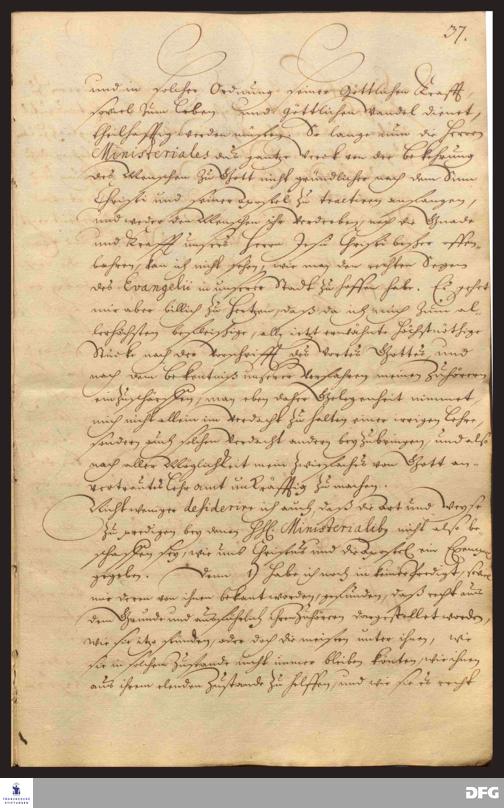 37.
und in solcher Ordnung seiner Göttlichen Krafft,
soviel zum Leben und göttlichen Wandel dienet,
theilhafftig werden müssen. So lange nun die Herren
Ministeriales das gantze Werck von der Bekehrung
des Menschen zu Gott nicht gründlicher nach dem Sinn
Christi und seiner Apostel zu tractiren anfangen,
und weder den Menschen ihr Verderben, noch die Gnade
und Krafft unsers Herrn Jesu Christi besser offen-
bahren, kan ich nicht sehen, wie man den rechten Segen
des Evangelii in unserer Stadt zu hoffen habe. Es gehet
mir aber billich zu Hertzen, daß da ich mich zum al-
lerhöchsten befleissige, alle ietzt erwähnte höchstnöthige
Stücke nach der Vorschrifft des Wortes Gottes, und
nach dem Bekentniß unserer Vorfahren meinen Zuhörern
einzuschärffen, man eben daher Gelegenheit nimmet
mich nicht allein im Verdacht zu halten einer irrigen Lehre,
sondern auch solchen Verdacht andern beyzubringen, und also
nach aller Mögligkeit mein von Gott an-
vertrautes Lehramt unkräfftig zu machen.
Nicht weniger desiderire ich auch, daß die Art und Weyse
zu predigen bey denen HHl. Ministerialib. nicht also be-
schaffen sey, wie uns Christus und die Apostel ein Exempel
gegeben. Denn 1) habe ich noch in keiner Predigt,
mir deren von ihnen bekant worden, gefunden, daß recht aus
dem Grunde und ausführlich ihren Zuhörern dargestellet worden,
wie sie itzo stünden, oder doch die meisten unter ihnen, wie
sie in solchem Zustande nicht immer bleiben könten, wie ihnen
aus ihrem elenden Zustande zu helffen, und wie sie es recht
FRANCKESCHE STIFTUNGEN
DFG